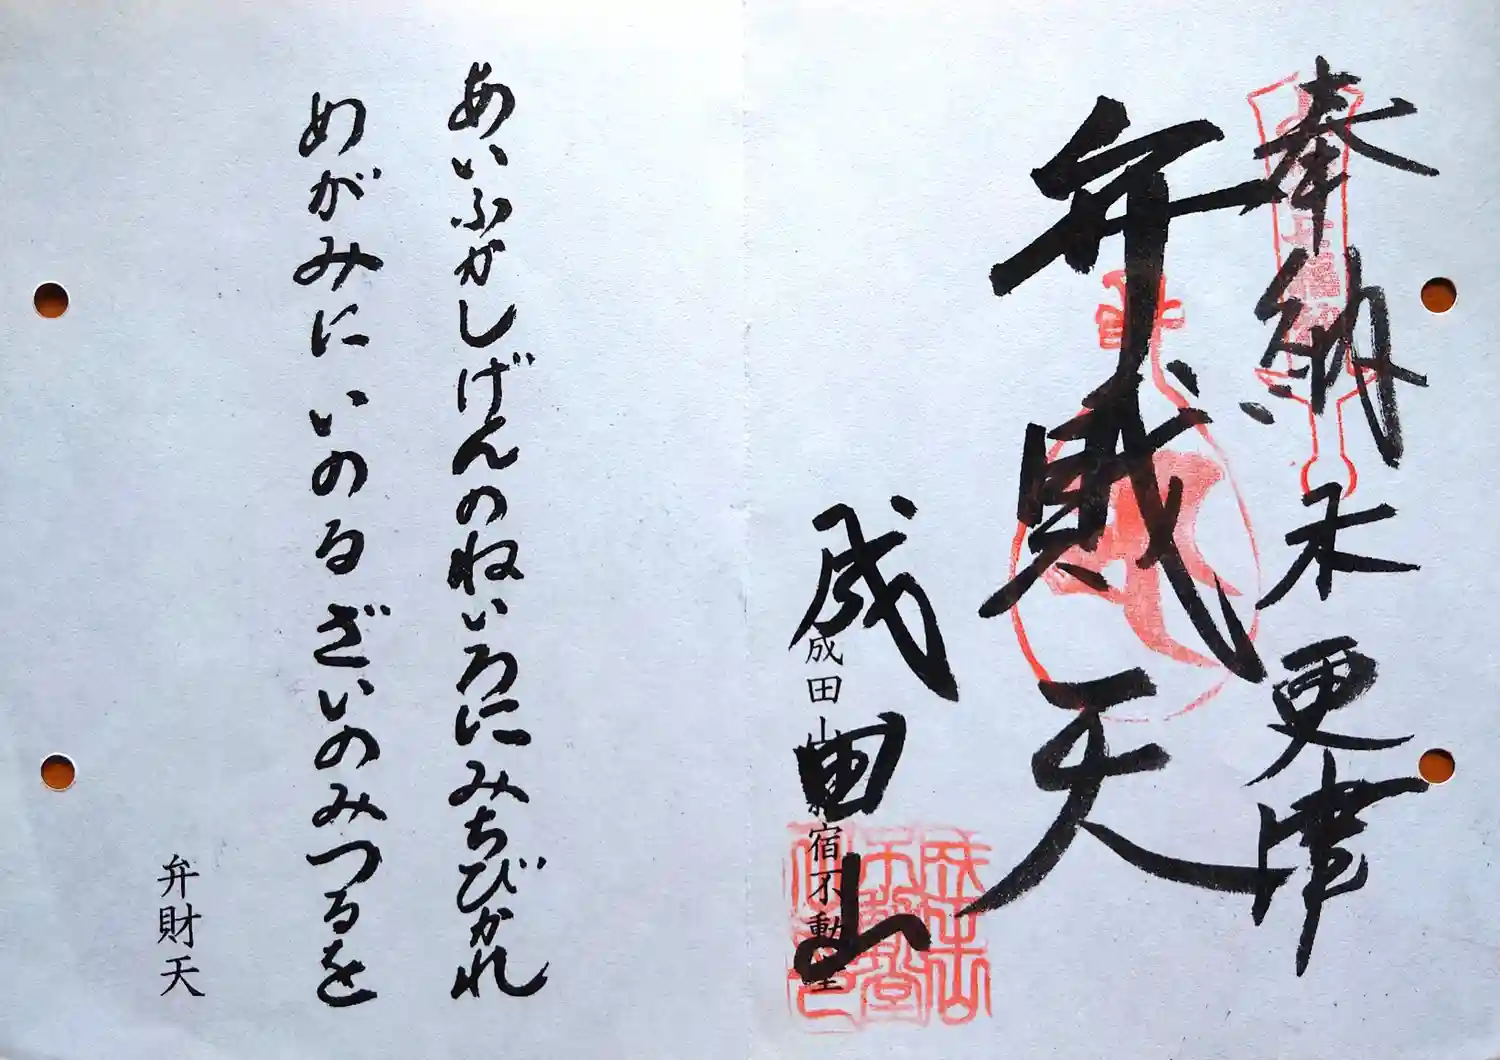 奉納 木更津
弁財天
成田山
成田山新宿不動堂
あいふかしげんのねいろにみちびかれ
めがみにいのるざいのみつるを
弁財天